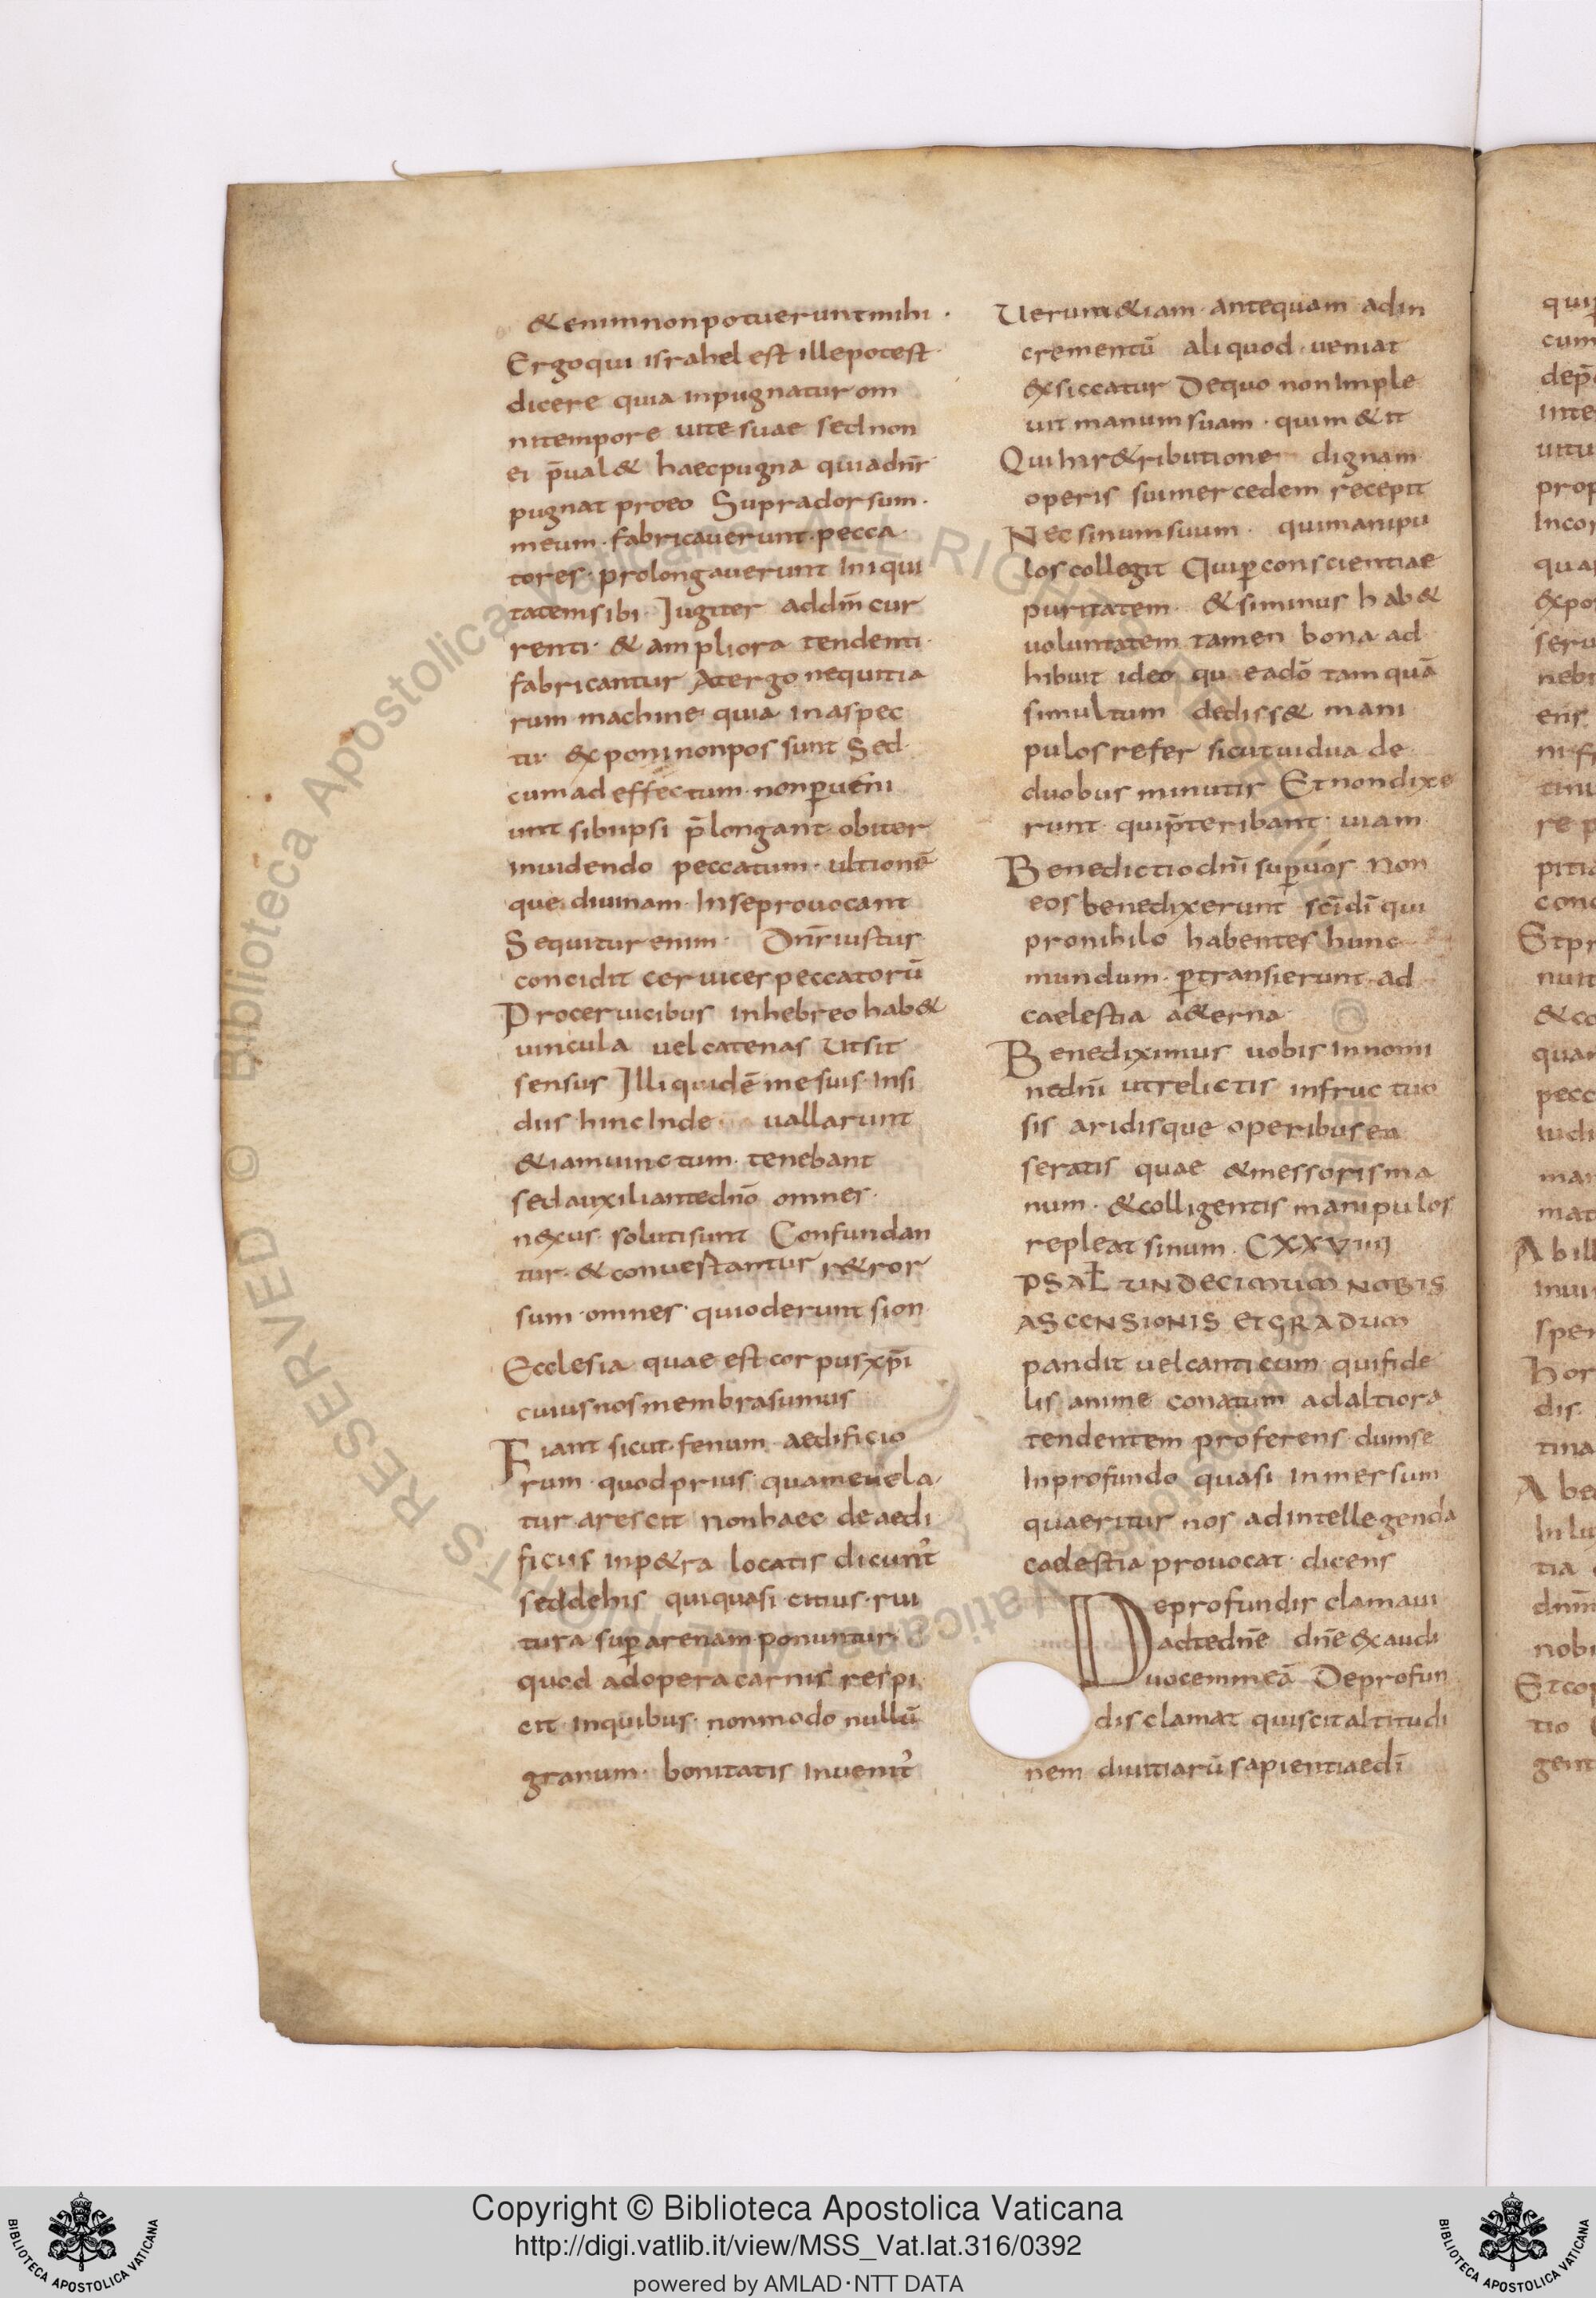 & enim non potuerunt mihi ·
Ergo qui israhel est ille potest
dicere quia inpugnatur om
ni tempore uite suae sed non
ei p̄ual& haec pugna quia dn̄s
pugnat pro eo Supra dorsum ·
meum · fabricauerunt · pecca ·
tores · prolongauerunt iniqui
tatem sibi · Iugiter ad dm̄ cur
renti · & ampliora tendenti ·
fabricantur A tergo nequitia
rum machine quia in aspec
tu · exponi non possunt Sed ·
cum ad effectum · non ꝑueni
unt sibi ipsi p̄longant · obiter
inuidendo peccatum · ultionē
que diuinam · In se prouocant
Sequitur enim · Dn̄s iustus
concidit ceruices peccatorū
Pro ceruicibus in hebreo hab&
uincula uel catenas Ut sit
sensus Illi quidē me suis · insi
diis · hinc Inde uallarunt
& iam uinctum · tenebant
sed auxiliante dn̄o omnes ·
nexus · soluti sunt Confundan
tur · & conuestantur r&ror
sum · omnes · qui oderunt sion
Ecclesia quae est corpus xp̄i
cuius nos membra sumus
Fiant sicut · fenum aedificio
rum · quod prius · quam euela ·
tur · arescit non haec de aedi
ficiis in p&ra locatis dicunt̉
sed de his qui quasi · citius · rui
tura suꝑ arenam · ponuntur ·
quod ad opera carnis respi
cit · in quibus · non modo nullū
granum · bonitatis inuenit̉
Uerum &iam · antequam ad in
crementū aliquod · ueniat
exsiccatur De quo non Imple
uit manum suam · qui m&it
Qui In r&ributione dignam
operis sui mercedem recepit
Nec sinum suum · qui manipu
los collegit Qui ꝑ conscientiae
puritatem · & si minus hab&
uoluntatem tamen bona ad
hibuit ideo qu e a dō tamquā
si multum dediss& mani
pulos refer sicut uidua de
duobus minutis Et non dixe
runt · qui p̄teribant · uiam
Benedictio dn̄i suꝑ uos Non
eos benedixerunt sc̄i dī qui
pro nihilo habentes hunc
mundum · ꝑtransierunt · ad
caelestia a&erna
Benediximus uobis In nomi
ne dn̄i ut relictis infructuo
sis aridisque operibus ea
seratis quae & messoris ma
num · & colligentis manipulos
repleat sinum · CXXVIIII
PSAł UNDECIMUM NOBIS
ASCENSIONIS ET GRADUM
pandit uel canticum · qui fide
lis anime conatum ad altiora
tendentem proferens · dum se
In profundo quasi inmersum
quaeritur nos ad intellegenda
caelestia prouocat · dicens
De profundis clamaui
ad te dn̄e dn̄e exaudi
uocem meā De profun
dis clamat qui scit altitudi
nem diuitiarū sapientiae dī
Copyright © Biblioteca Apostolica Vaticana
http://digi.vatlib.it/view/MSS_Vat.lat.316/0392
powered by AMLAD·NTT DATA
BIBLIOTECA APOSTOLICA VATICANA
BIBLIOTECA APOSTOLICA VATICANA